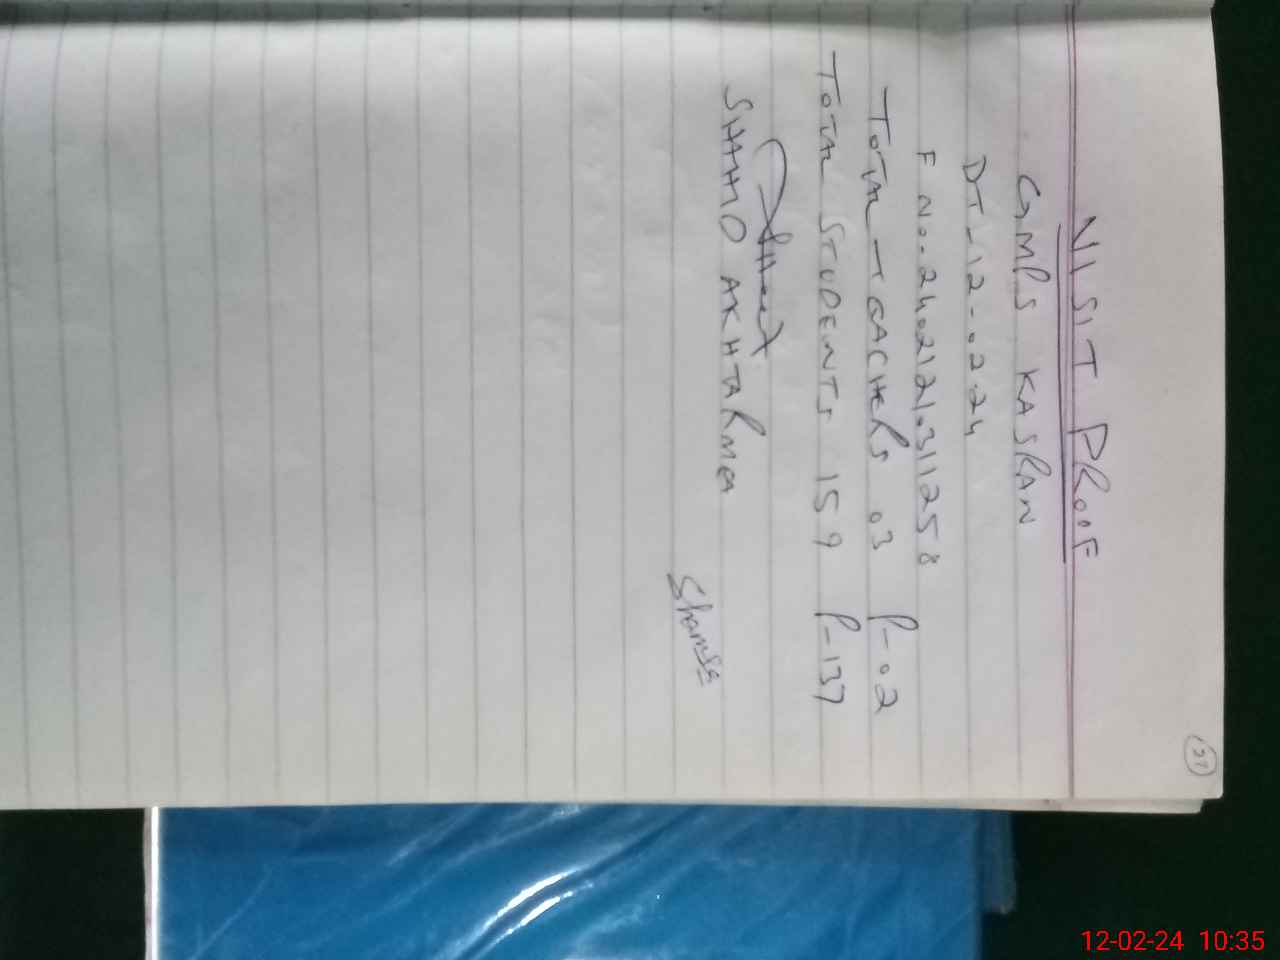 VISIT PROOF
GMPS KASRAN
DT-12-02-24
F No.
TOTAL TEACHERS 03 P-02
TOTAL STUDENTS 159 P-137
SHAHID AKHTAR MEA
12-02-24 10:35